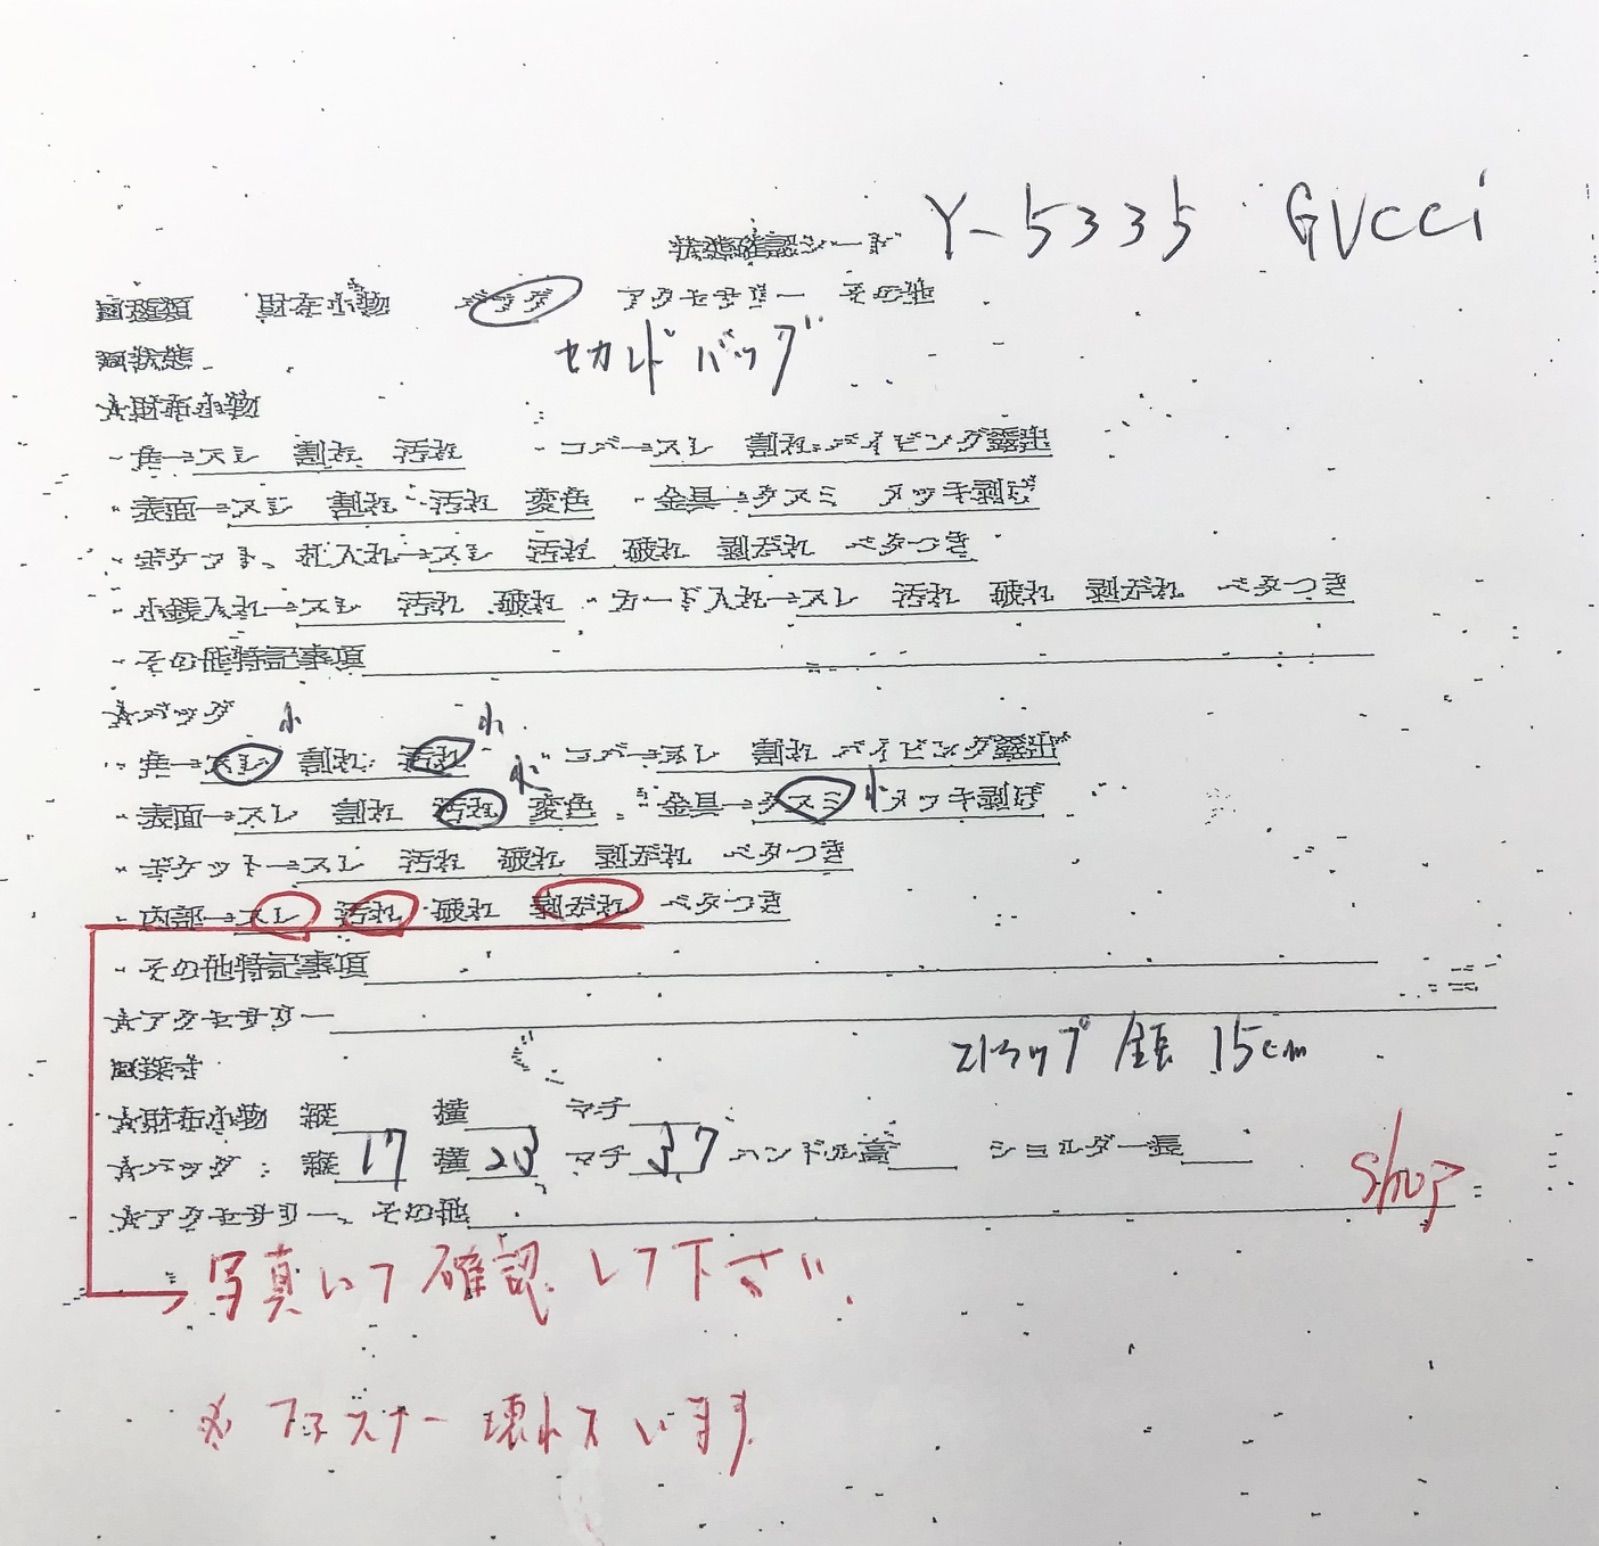 状態確認シート Y-5335 GUCCI
■種類 財布小物 バッグ アクセサリー その他
セカンドバッグ
■状態
★財布小物
・角→スレ 割れ 汚れ ・コバ→スレ 割れ パイピング露出
・表面→スレ 割れ 汚れ 変色 ・金具→クスミ メッキ剥げ
・ポケット、札入れ→スレ 汚れ 破れ 剥がれ ベタつき
・小銭入れ→スレ 汚れ 破れ ・カード入れ→スレ 汚れ 破れ 剥がれ ベタつき
・その他特記事項
★バッグ
小 小
・角→スレ 割れ 汚れ ・コバ→スレ 割れ パイピング露出
小
・表面→スレ 割れ 汚れ 変色 ・金具→クスミ 小 メッキ剥げ
・ポケット→スレ 汚れ 破れ 剥がれ ベタつき
・内部→スレ 汚れ 破れ 剥がれ ベタつき
・その他特記事項
★アクセサリー
ストラップ 全長 15cm
■採寸
★財布小物 縦 横 マチ
★バッグ : 縦 17 横 23 マチ 3.7 ハンドル高 ショルダー長
shop
★アクセサリー、その他
→写真にて確認して下さい.
※ ファスナー壊れています